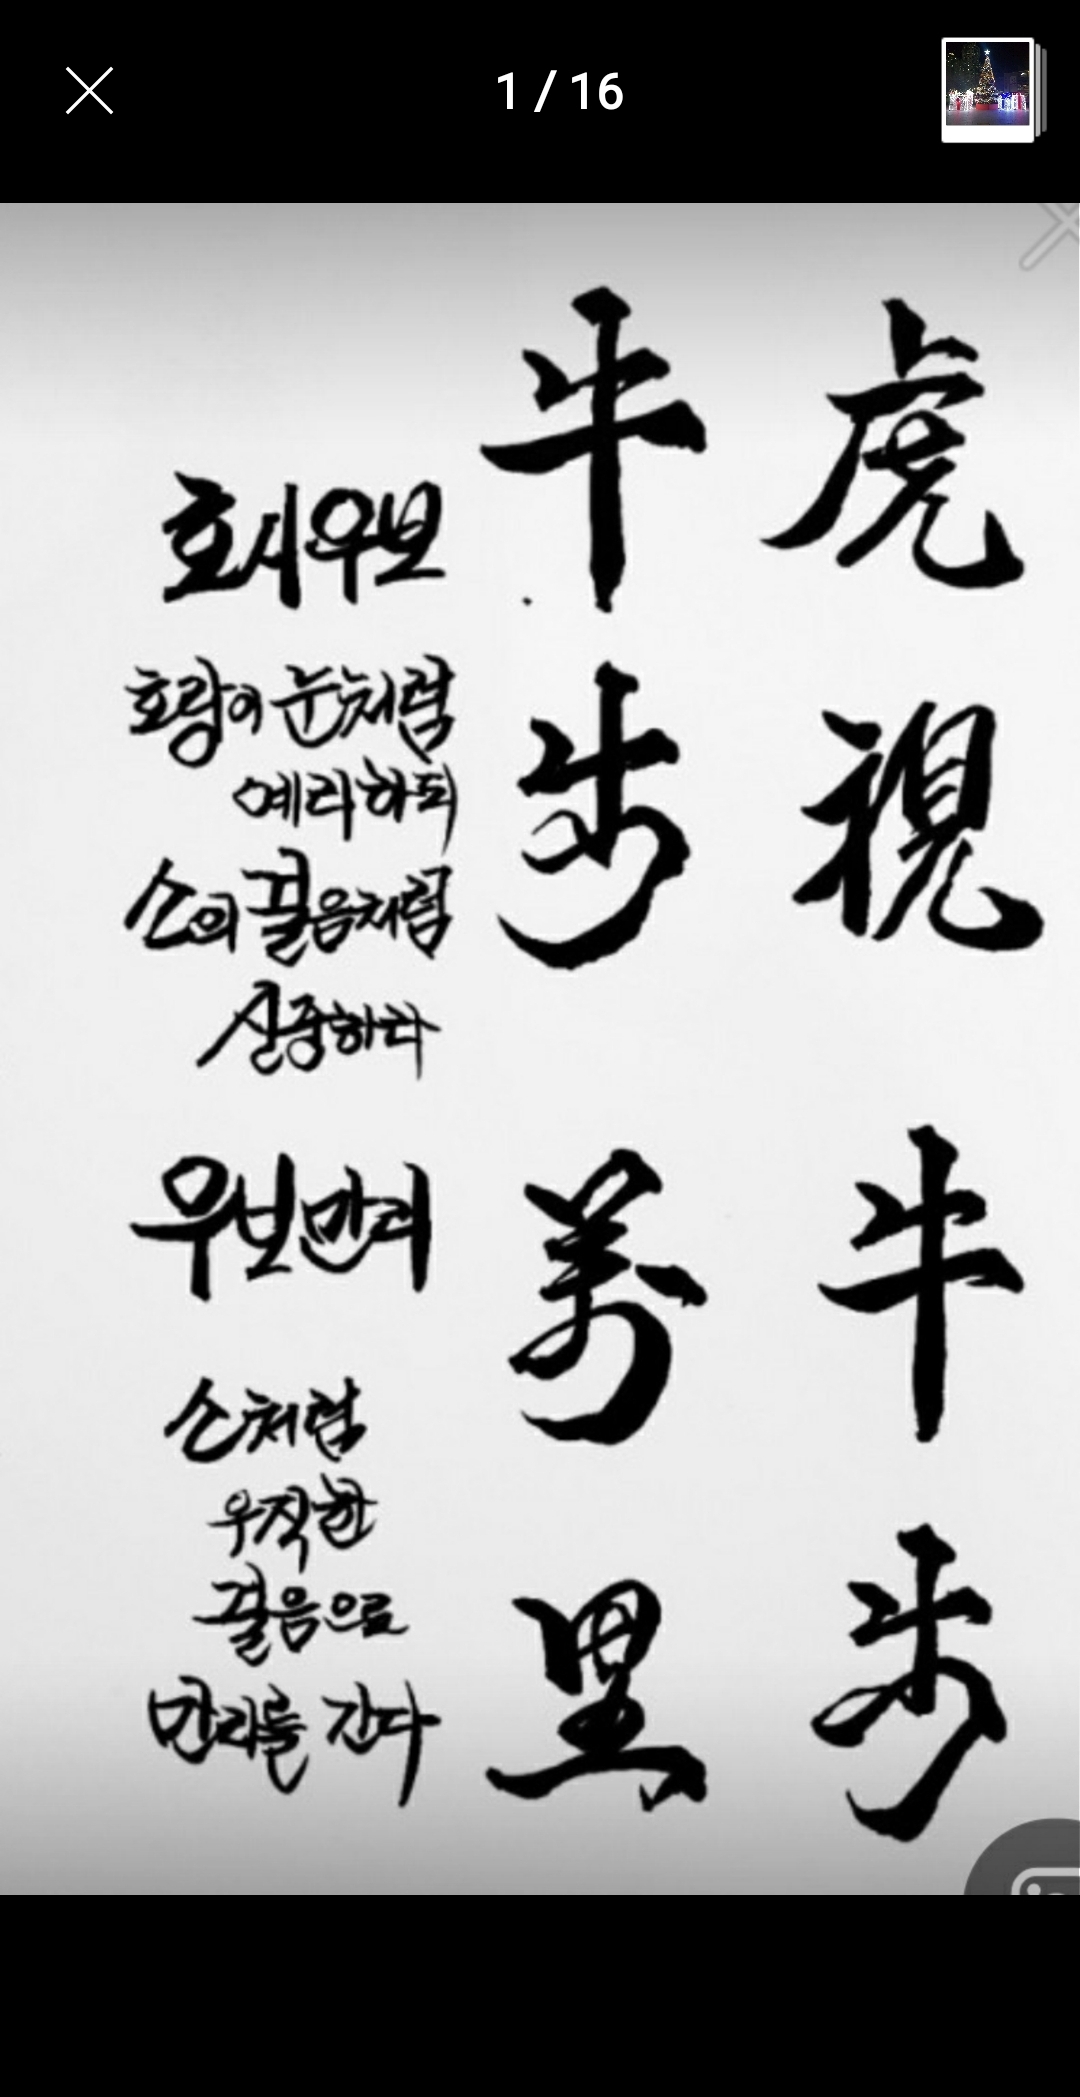 1 / 16
虎視
牛步
호시우보
호랑이 눈처럼
예리하되
소의 걸음처럼
신중하라
牛步
萬里
우보만리
소처럼
우직한
걸음으로
만리를 간다